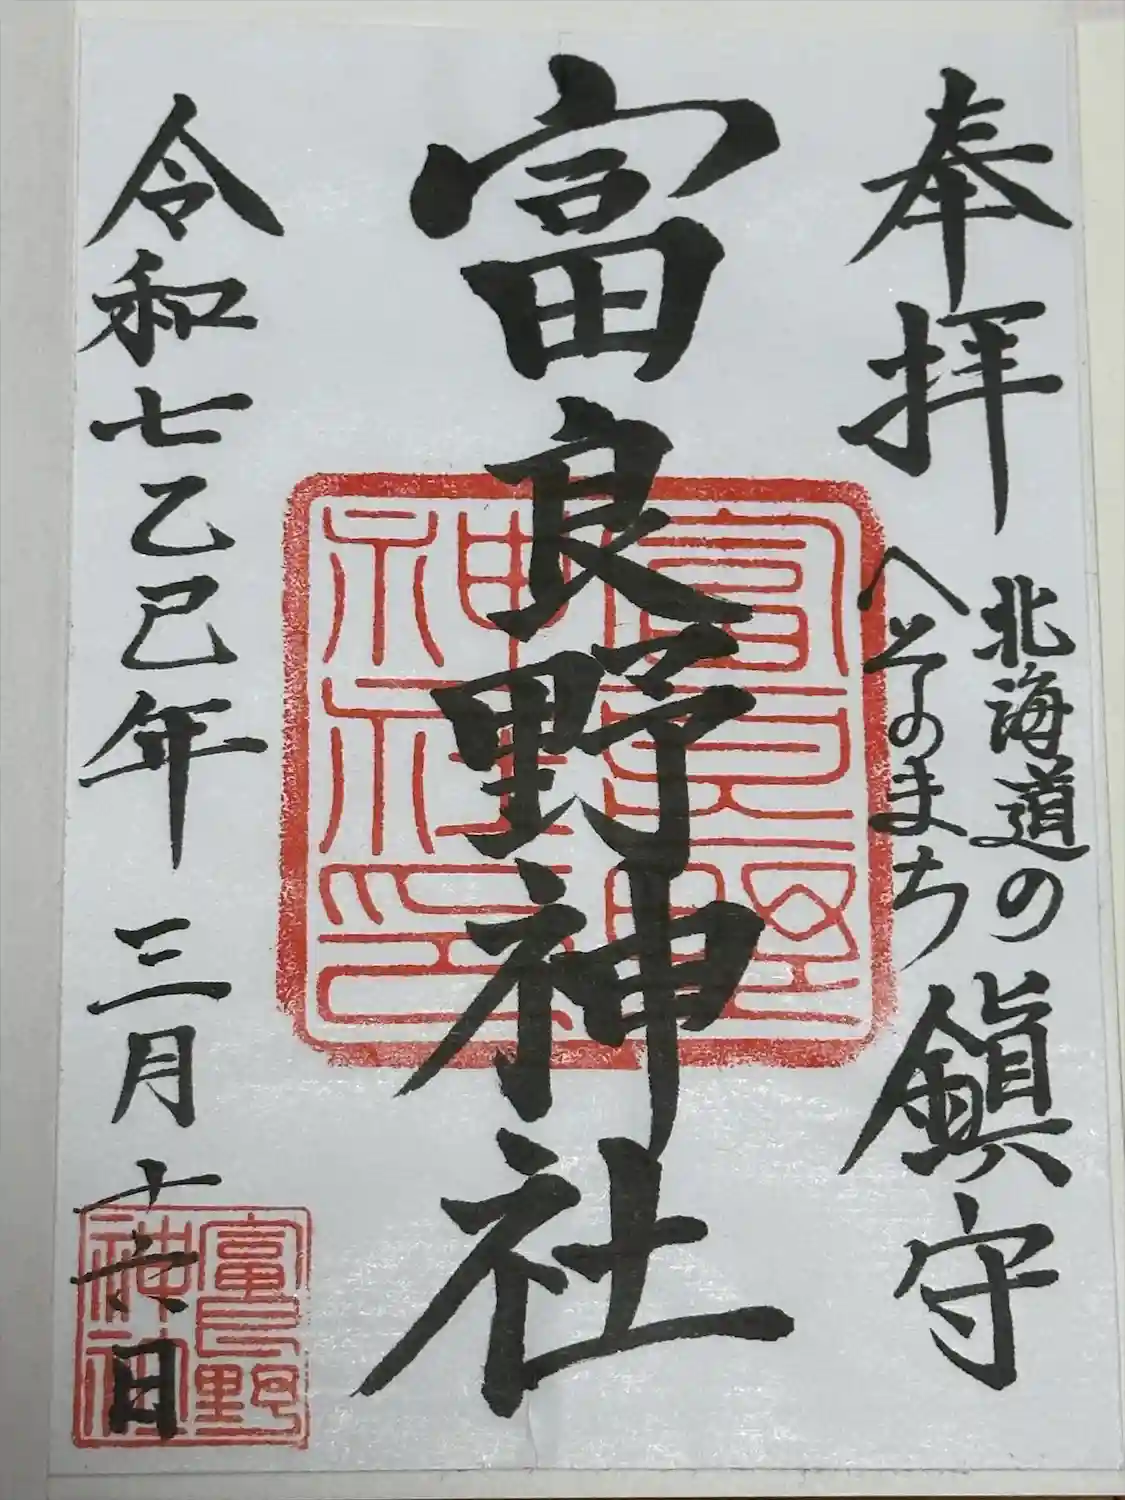 奉拝
北海道の
へそのまち
鎮守
富良野神社
富良野神社印
令和七乙巳年 三月十六日
富良野神社